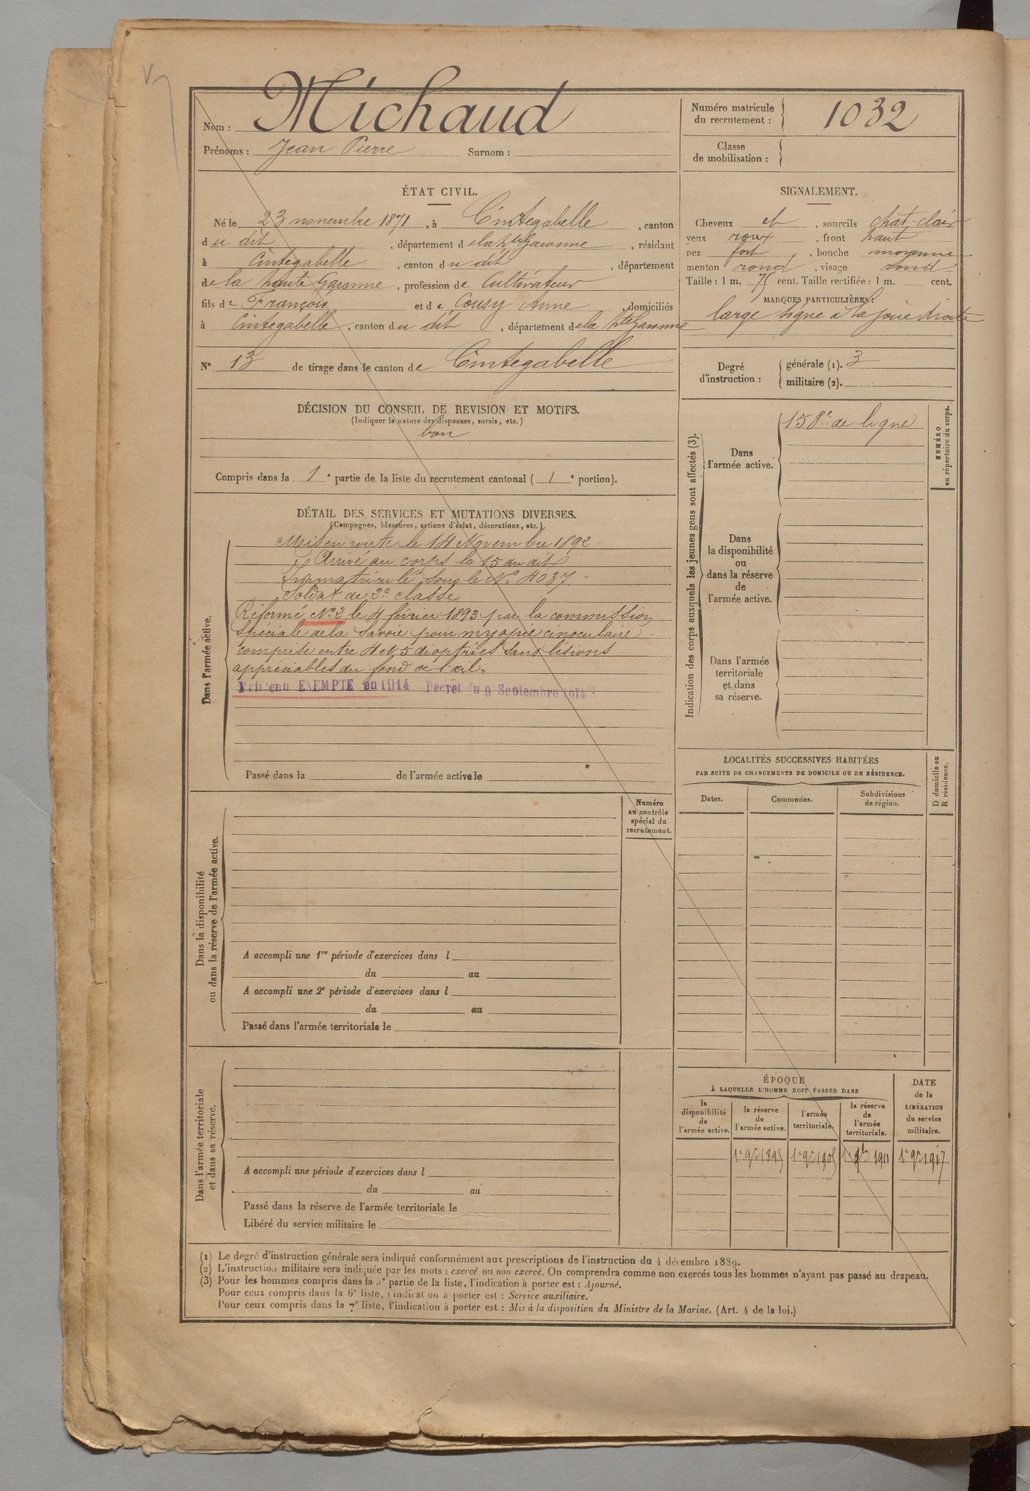 Nom : Michaud
Prénoms : Jean Pierre Surnom :
Numéro matricule du recrutement : 1032
Classe de mobilisation :
ÉTAT CIVIL.
Né le 23 novembre 1871, à Cintegabelle, canton
du dit, département de la Hte Garonne, résidant
à Cintegabelle, canton du dit, département
de la haute Garonne, profession de Cultivateur
fils de François et de Cousy Anne, domiciliés
à Cintegabelle, canton du dit, département de la Hte Garonne
N° 13 de tirage dans le canton de Cintegabelle
SIGNALEMENT.
Cheveux et, sourcils chat-clair
yeux roux, front haut
nez fort, bouche moyenne
menton rond, visage rond
Taille : 1 m. 75 cent. Taille rectifiée : 1 m. cent.
MARQUES PARTICULIÈRES :
large signe à la joue droite
Degré d'instruction : générale (1). 3
militaire (2).
DÉCISION DU CONSEIL DE REVISION ET MOTIFS.
(Indiquer la nature des dispenses, sursis, etc.)
bon
Compris dans la 1e partie de la liste du recrutement cantonal ( 1e portion).
DÉTAIL DES SERVICES ET MUTATIONS DIVERSES.
(Campagnes, blessures, actions d'éclat, décorations, etc.)
Dans l'armée active.
Mis en route le 14 Novembre 1892.
Arrivé au corps le 15 du dit
Immatriculé sous le N° 4037.
Soldat de 2e classe
Réformé N°2 le 4 février 1893 par la commission
Spéciale de la Savoie pour myopie binoculaire
comprise entre 4 et 5 dioptries sans lésions
appréciables du fond de l'œil.
Maintenu EXEMPTÉ en 1914 Décret du 9 Septembre 1914
Passé dans la de l'armée active le
Indication des corps auxquels les jeunes gens sont affectés (3).
Dans l'armée active.
158e de ligne
NUMÉRO au répertoire du corps.
Dans la disponibilité ou dans la réserve de l'armée active.
Dans l'armée territoriale et dans sa réserve.
Dans la disponibilité ou dans la réserve de l'armée active.
Numéro au contrôle spécial du recrutement.
A accompli une 1re période d'exercices dans l
du au
A accompli une 2e période d'exercices dans l
du au
Passé dans l'armée territoriale le
LOCALITÉS SUCCESSIVES HABITÉES
PAR SUITE DE CHANGEMENTS DE DOMICILE OU DE RÉSIDENCE.
Dates. Communes. Subdivisions de région. D domicile ou R résidence.
Dans l'armée territoriale et dans sa réserve.
A accompli une période d'exercices dans l
du au
Passé dans la réserve de l'armée territoriale le
Libéré du service militaire le
ÉPOQUE
À LAQUELLE L'HOMME DOIT PASSER DANS
la disponibilité de l'armée active. la réserve de l'armée active. l'armée territoriale. la réserve de l'armée territoriale. DATE de la LIBÉRATION du service militaire.
1er 9bre 1895 1er 9bre 1905 1er 9bre 1911 1er 9bre 1917
(1) Le degré d'instruction générale sera indiqué conformément aux prescriptions de l'instruction du 4 décembre 1889.
(2) L'instruction militaire sera indiquée par les mots : exercé ou non exercé. On comprendra comme non exercés tous les hommes n'ayant pas passé au drapeau.
(3) Pour les hommes compris dans la 5e partie de la liste, l'indication à porter est : Ajourné.
Pour ceux compris dans la 6e liste, l'indication à porter est : Service auxiliaire.
Pour ceux compris dans la 7e liste, l'indication à porter est : Mis à la disposition du Ministre de la Marine. (Art. 4 de la loi.)